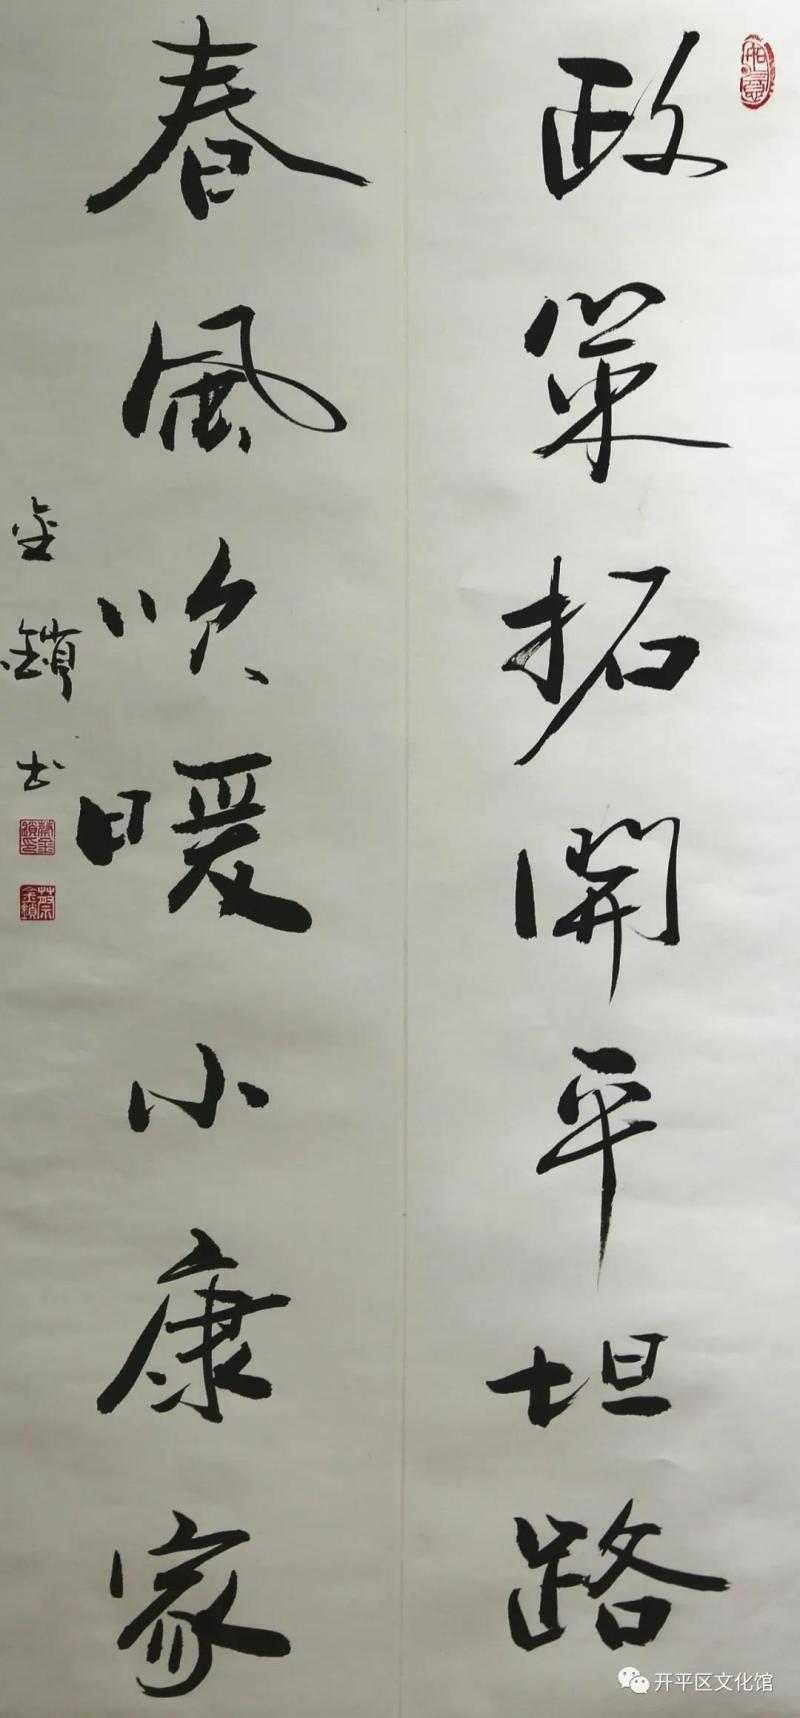 政策拓開平坦路
春風吹暖小康家
金鎖书
蔡金鎖
开平区文化馆